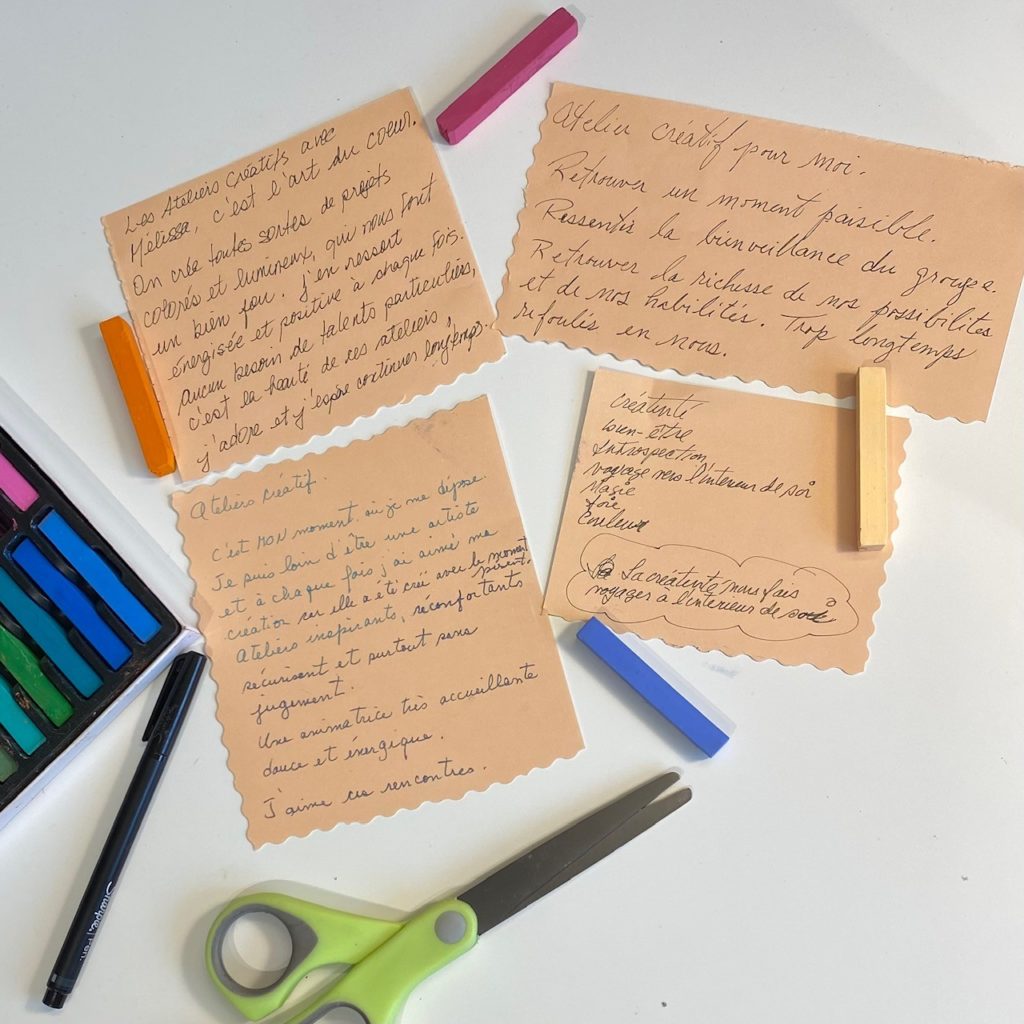 Les Ateliers Créatifs avec
Mélissa, c'est l'art du coeur.
On crée toutes sortes de projets
colorés et lumineux, qui nous font
un bien fou. J'en ressort
énergisée et positive à chaque fois.
Aucun besoin de talents particuliers,
c'est la beauté de ces ateliers,
j'adore et j'espère continuer longtemps.
Atelier créatif pour moi.
Retrouver un moment paisible.
Ressentir la bienveillance du groupe.
Retrouver la richesse de nos possibilités
et de nos habilités. Trop longtemps
refoulés en nous.
Ateliers créatif.
C'est MON moment où je me dépose.
Je suis loin d'être une artiste
et à chaque fois j'ai aimé ma
création car elle a été créé avec le moment
présent.
Ateliers inspirants, réconfortants
sécurisent et surtout sans
jugement.
Une animatrice très accueillante
douce et énergique.
J'aime ces rencontres.
créativité
bien-être
Introspection
voyage vers l'intérieur de soi
Magie
Joie
Couleur
La créativité nous fais
voyager à l'intérieur de
Sharpie Pen